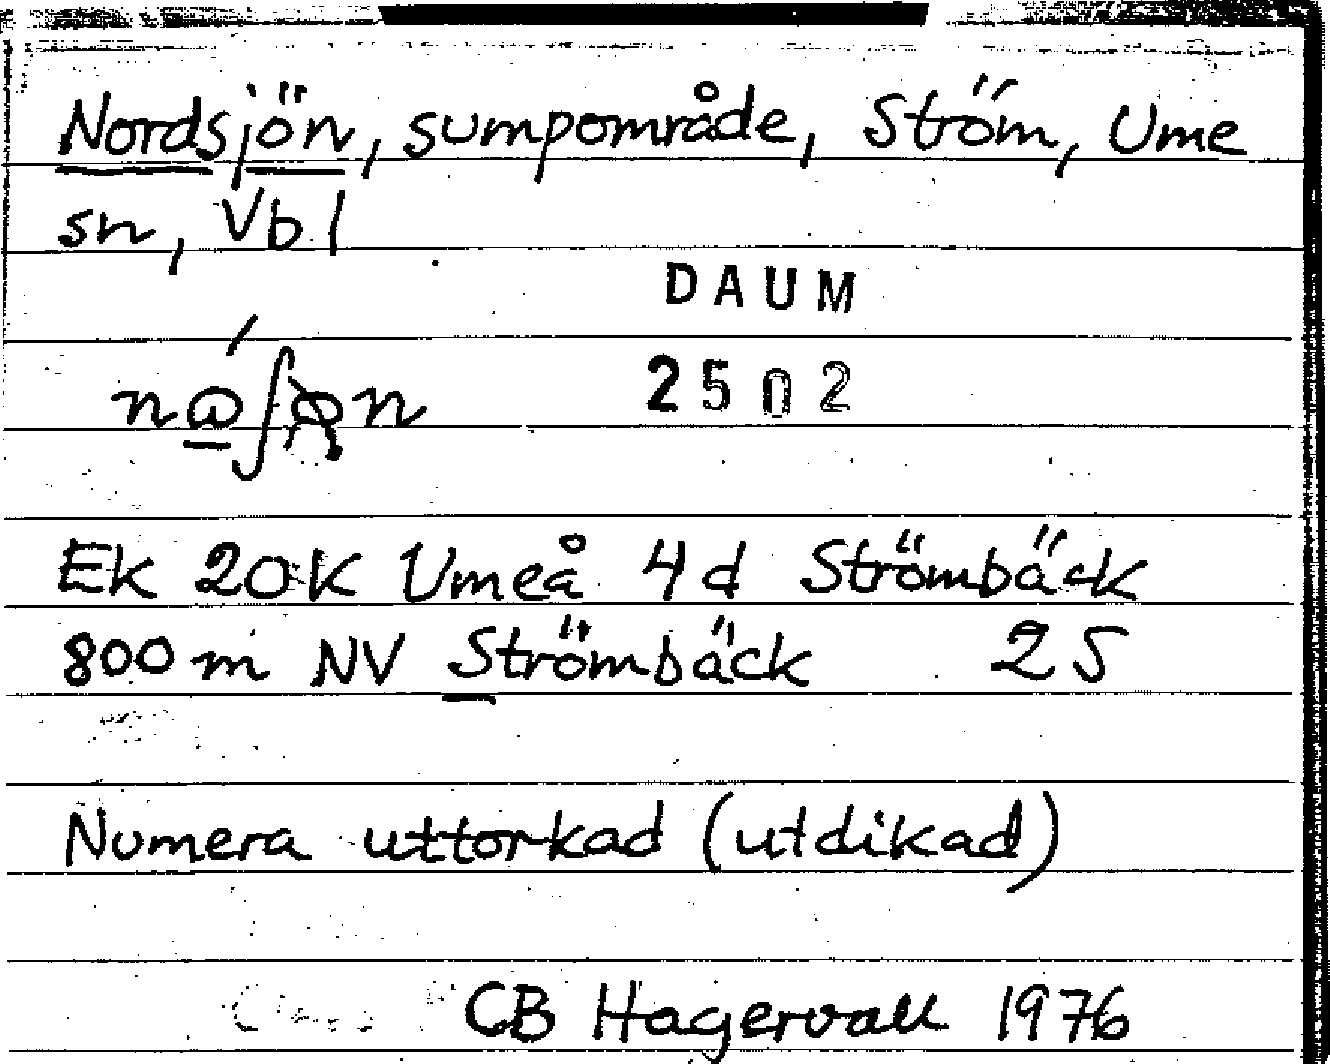 Nordsjön, sumpområde, Ström, Ume
sn, Vbl
DAUM
2502
Ek 20K Umeå 4d Strömbäck
800 m NV Strömbäck 25
Numera uttorkad (utdikad)
CB Hagervall 1976